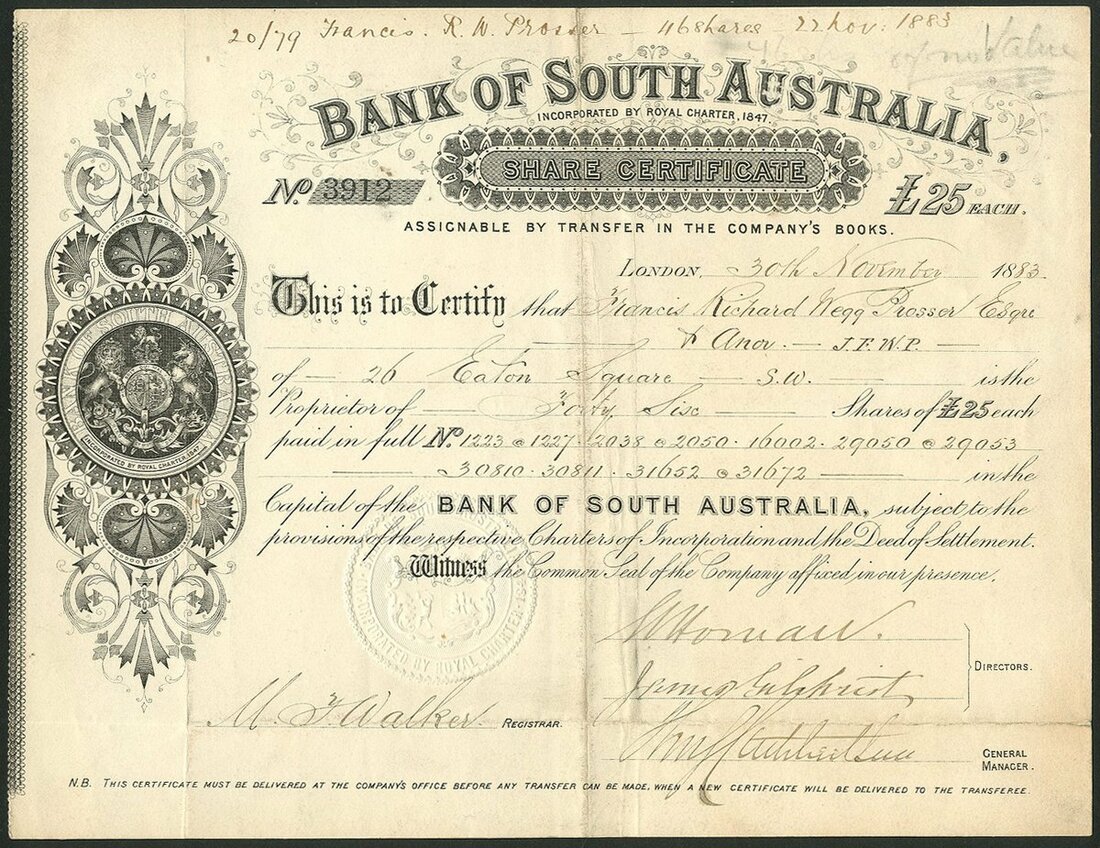 20/79 Francis. R. W. Prosser — 46 Shares — 22 Nov: 1883
of no Value
BANK OF SOUTH AUSTRALIA,
INCORPORATED BY ROYAL CHARTER, 1847.
SHARE CERTIFICATE
No. 3912
£25 EACH.
ASSIGNABLE BY TRANSFER IN THE COMPANY'S BOOKS.
LONDON, 30th November 1883.
This is to Certify that Francis Richard Wegg Prosser Esqre
& Anor. — J.F.W.P. —
of — 26 Eaton Square — S.W. — is the
Proprietor of — Forty Six — Shares of £25 each
paid in full No. 1223 @ 1227 · 2038 @ 2050 · 16002 · 29050 @ 29053
— 30810 · 30811 · 31652 @ 31672 — in the
Capital of the BANK OF SOUTH AUSTRALIA, subject to the
provisions of the respective Charters of Incorporation and the Deed of Settlement.
Witness the Common Seal of the Company affixed in our presence.
BANK OF SOUTH AUSTRALIA
INCORPORATED BY ROYAL CHARTER 1847
INCORPORATED BY ROYAL CHARTER 184
James Gilchrist
DIRECTORS.
M. F. Walker. REGISTRAR.
GENERAL
MANAGER.
N.B. THIS CERTIFICATE MUST BE DELIVERED AT THE COMPANY'S OFFICE BEFORE ANY TRANSFER CAN BE MADE, WHEN A NEW CERTIFICATE WILL BE DELIVERED TO THE TRANSFEREE.